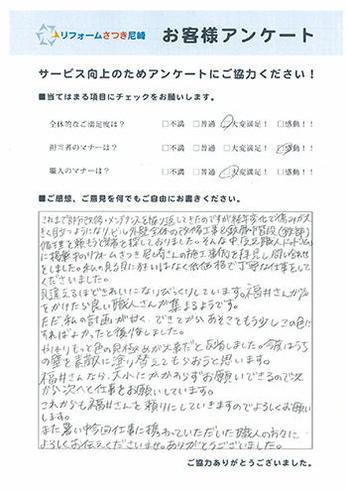 リフォームさつき尼崎 お客様アンケート
サービス向上のためアンケートにご協力ください！
■当てはまる項目にチェックをお願いします。
全体的なご満足度は？ □不満 □普通 □大変満足！ □感動！！
担当者のマナーは？ □不満 □普通 □大変満足！ □感動！！
職人のマナーは？ □不満 □普通 □大変満足！ □感動！！
■ご感想、ご意見を何でもご自由にお書きください。
これまで部分改修・メンテナンスを繰り返してきたのですが経年劣化で傷みが大
きく目立つようになりビル外壁全体の改修工事と鉄骨階段
補修工事を頼もうと業者を探しておりました。そんな中
に掲載のリフォームさつき尼崎さんの施工事例を拝見し問い合わせ
をしました。私の見る目に狂いはなく低価格で丁寧な仕事をして
くださいました。
見違えるほどきれいになりびっくりしています。福井さんが声
をかけたら良い職人さんが集まるようです。
ただ私の計画が甘く、できてからあそこをもう少しこの色に
すればよかったと後悔をしました。
やはりもっと色の見極めが大事だと反省しました。今度はうち
の壁を素敵に塗り替えてもらおうと思います。
福井さんなら、大小にかかわらずお願いできるので次
から次へと仕事をお願いしています。
これからも福井さんを頼りにしていきますのでよろしくお願い
します。
また暑い中今回仕事に携わっていただいた職人の方々に
よろしくお伝えくださいませ。ありがとうございました。
ご協力ありがとうございました。